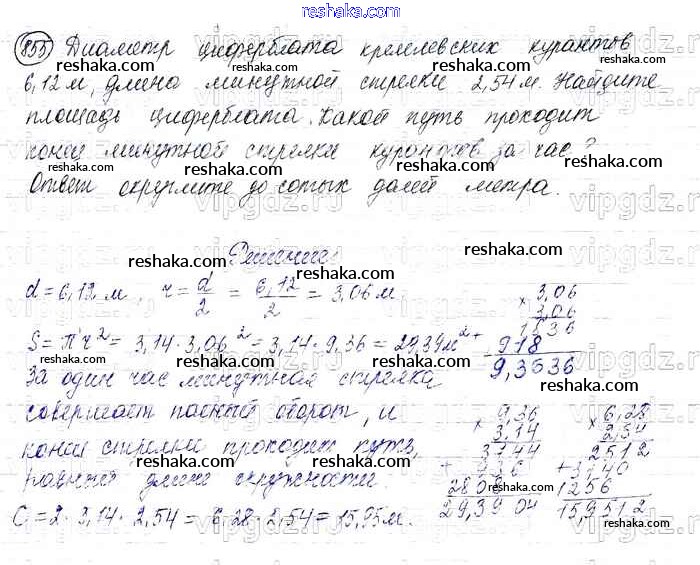 reshaka.com
855 Диаметр циферблата кремлевских курантов
6,12 м, длина минутной стрелки 2,54 м. Найдите
площадь циферблата. Какой путь проходит
конец минутной стрелки курантов за час?
Ответ округлите до сотых долей метра.
Решение:
d = 6,12 м, r = d/2 = 6,12/2 = 3,06 м
S = πr² = 3,14 · 3,06² = 3,14 · 9,36 = 29,39 м²
За один час минутная стрелка
совершает полный оборот, и
конец стрелки проходит путь,
равный длине окружности.
C = 2 · 3,14 · 2,54 = 6,28 · 2,54 = 15,95 м.
× 3,06
3,06
1836
+ 918
9,3636
× 9,36
3,14
3744
+ 936
2808
29,3904
× 6,28
2,54
2512
+ 3140
1256
15,9512
reshaka.com
vipgdz.ru